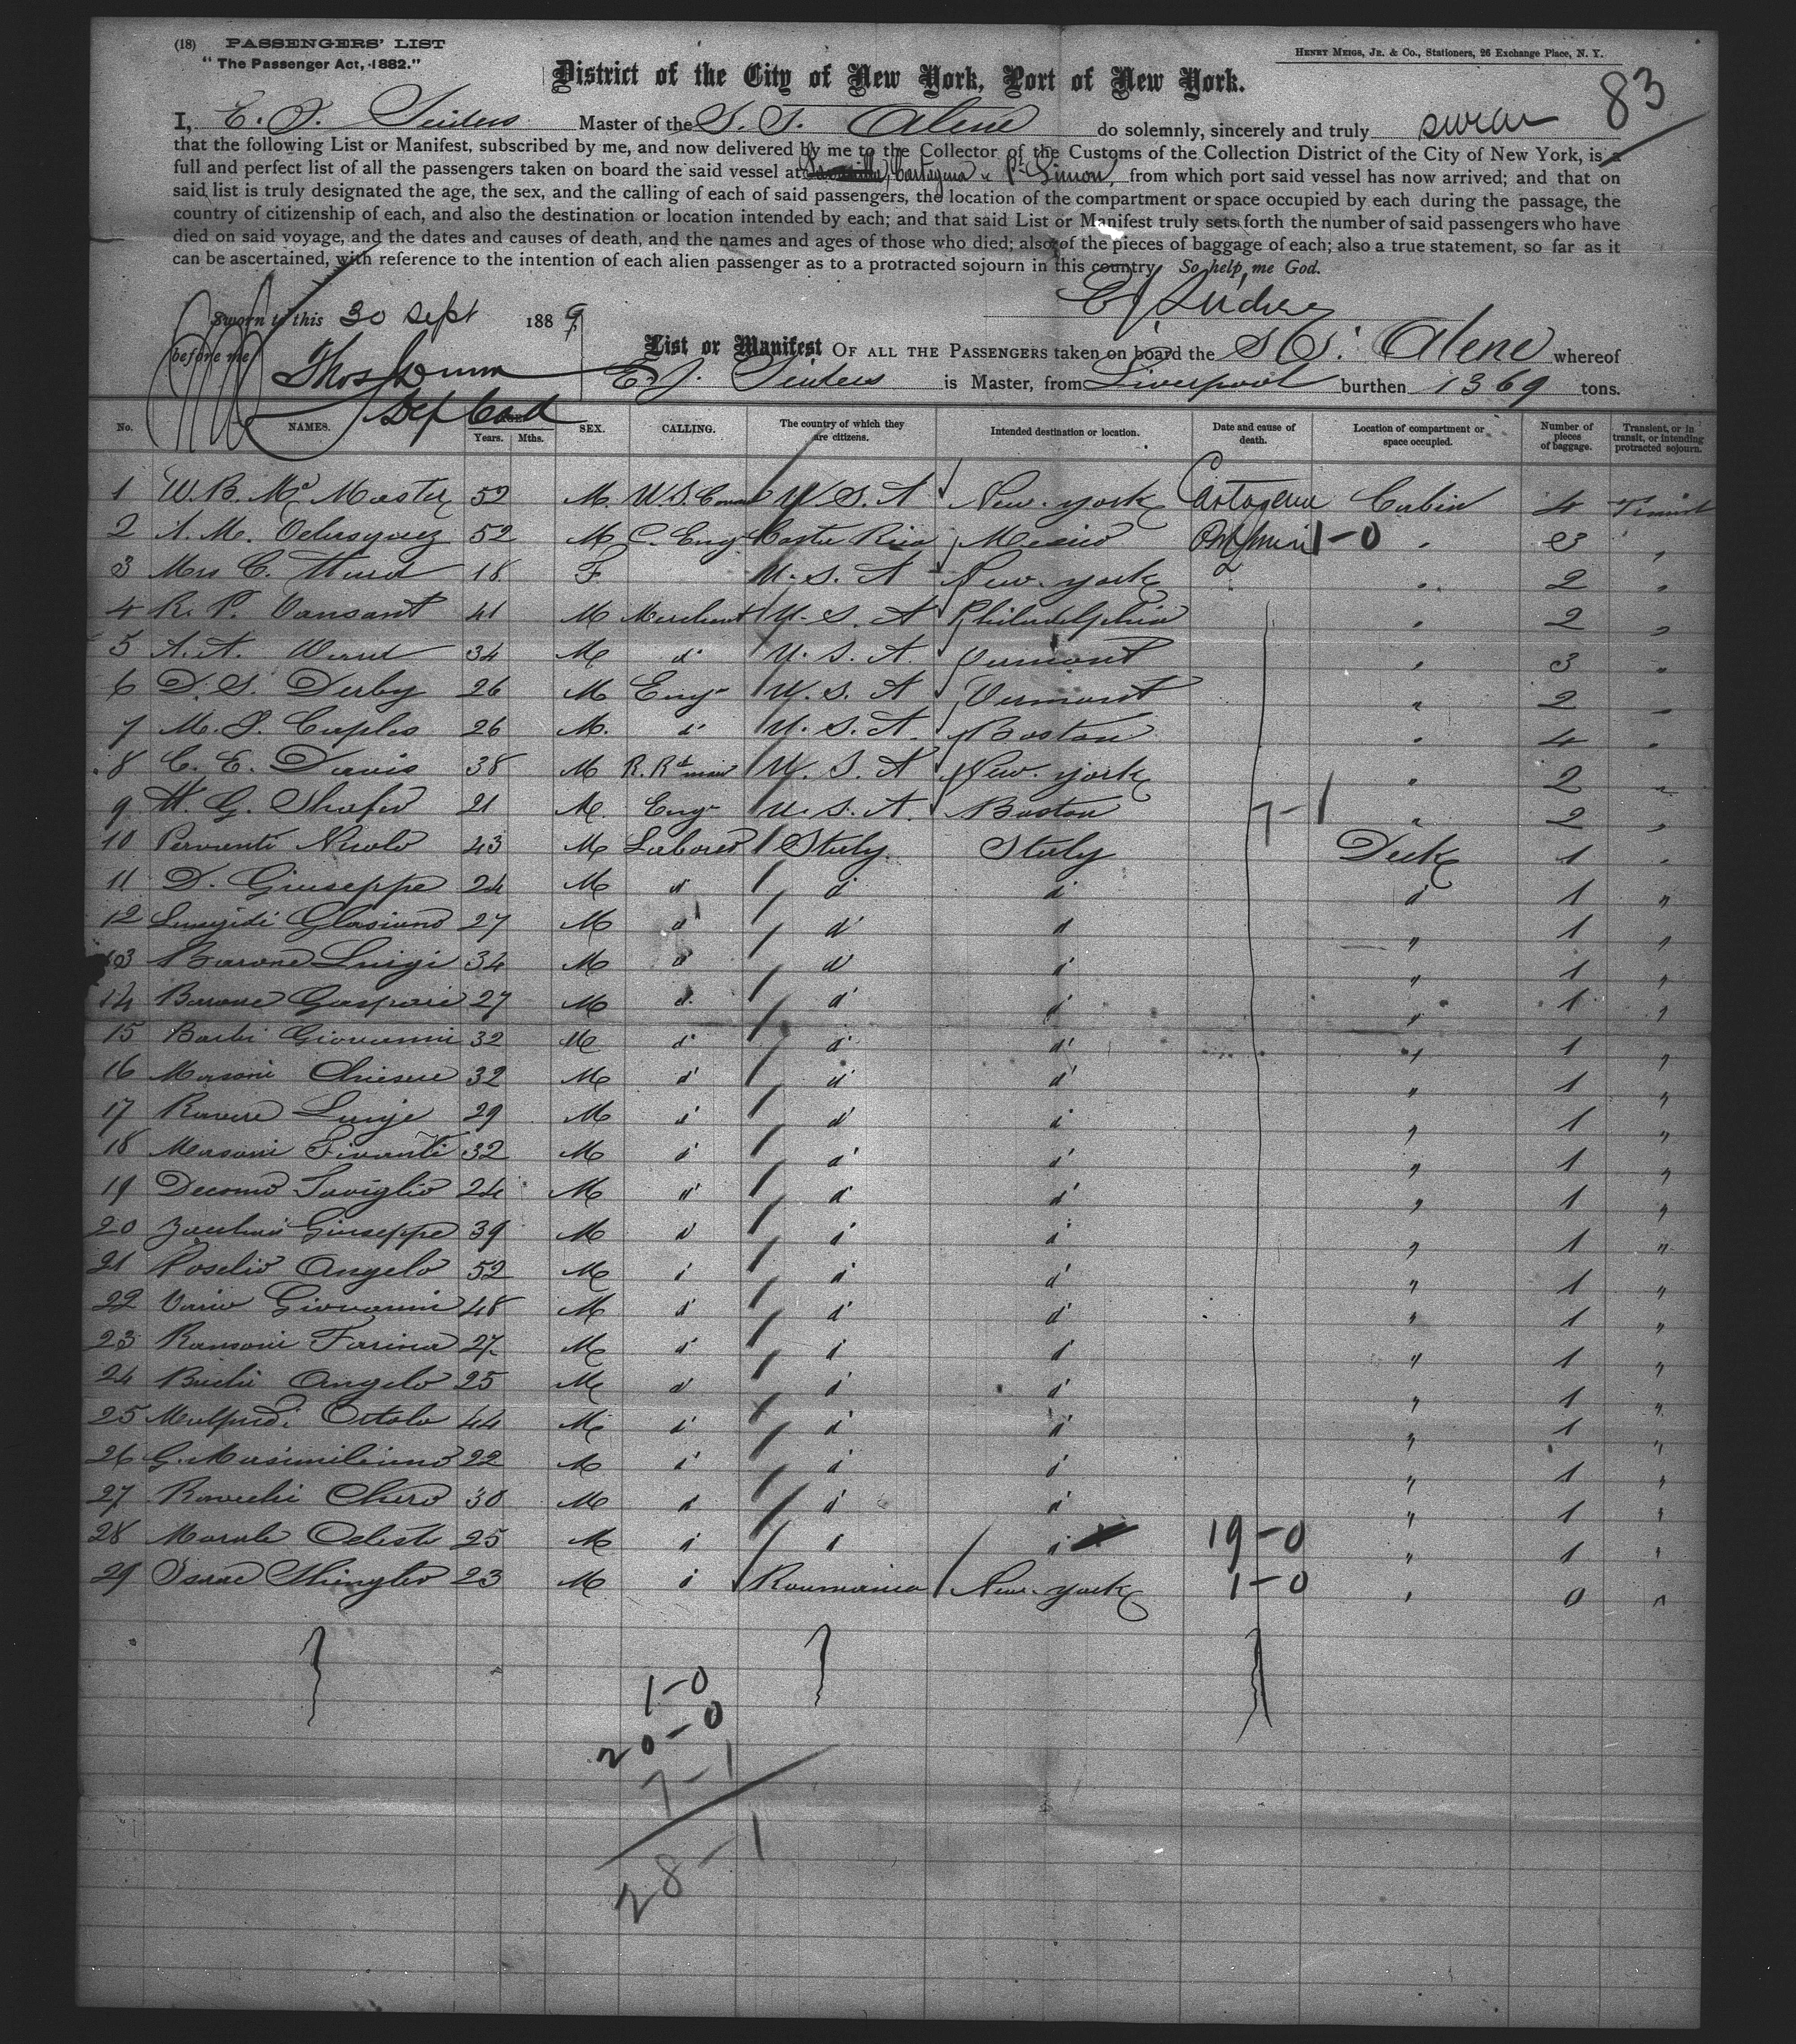 (18) PASSENGERS' LIST
"The Passenger Act, 1882."
HENRY MEIGS, JR. & CO., Stationers, 26 Exchange Place, N. Y.
83
District of the City of New York, Port of New York.
I, E. J. Seiders Master of the S. S. Alene do solemnly, sincerely and truly swear
that the following List or Manifest, subscribed by me, and now delivered by me to the Collector of the Customs of the Collection District of the City of New York, is a
full and perfect list of all the passengers taken on board the said vessel at Cartagena & Pt Limon, from which port said vessel has now arrived; and that on
said list is truly designated the age, the sex, and the calling of each of said passengers, the location of the compartment or space occupied by each during the passage, the
country of citizenship of each, and also the destination or location intended by each; and that said List or Manifest truly sets forth the number of said passengers who have
died on said voyage, and the dates and causes of death, and the names and ages of those who died; also of the pieces of baggage of each; also a true statement, so far as it
can be ascertained, with reference to the intention of each alien passenger as to a protracted sojourn in this country. So help me God.
E J Seiders
Sworn to this 30 Sept 1889
before me Thos Dunn
Dep Coll
List or Manifest OF ALL THE PASSENGERS taken on board the S.S. Alene whereof
E. J. Seiders is Master, from Liverpool burthen 1369 tons.
No. NAMES. Years. Mths. SEX. CALLING. The country of which they are citizens. Intended destination or location. Date and cause of death. Location of compartment or space occupied. Number of pieces of baggage. Transient, or in transit, or intending protracted sojourn.
1 W. B. McMaster 52 M. U.S. U.S.A New York Cartagena Cabin 4
2 A. M. Velasquez 52 M C. Eng Costa Rica Mexico 1-0 " 3 "
3 Mrs C. 18 F U.S.A New York " 2 "
4 R. P. Vansant 41 M Merchant U.S.A Philadelphia " 2 "
5 A. A. Ward 34 M d U.S.A. Vermont " 3 "
6 D. S. Derby 26 M Eng U.S.A Vermont " 2 "
7 M. S. Cuples 26 M. d U.S.A. Boston " 4 "
8 C. E. Davis 38 M R. Rd man U.S.A New York " 2 "
9 H. G. Shafer 21 M. Eng U.S.A. Boston 7-1 " 2 "
10 Nicolo 43 M Laborer Italy Italy Deck 1 "
11 D. Giuseppe 24 M d d d d 1 "
12 27 M d d d " 1 "
13 Barone Luigi 34 M d d d " 1 "
14 Barone Gaspare 27 M d d d " 1 "
15 Barbi Giovanni 32 M d d d " 1 "
16 Masoni 32 M d d d " 1 "
17 Luige 29 M d d d " 1 "
18 Masoni 32 M d d d " 1 "
19 24 M d d d " 1 "
20 Giuseppe 39 M d d d " 1 "
21 Roselio Angelo 52 M d d d " 1 "
22 Giovanni 48 M d d d " 1 "
23 Ransoni Farina 27 M d d d " 1 "
24 Angelo 25 M d d d " 1 "
25 44 M d d d " 1 "
26 G. Masimiliano 22 M d d d " 1 "
27 30 M d d d " 1 "
28 Celeste 25 M d d d 19-0 " 1 "
29 Isaac 23 M d Roumania New York 1-0 " 0 "
1-0
20-0
7-1
28-1